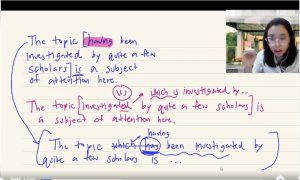 The topic having been
investigated by quite a few
scholars is a subject
of attention here.
vs
which is investigated by...
The topic investigated by quite a few scholars is
a subject of attention here.
having
The topic which has been investigated by
quite a few scholars is ...